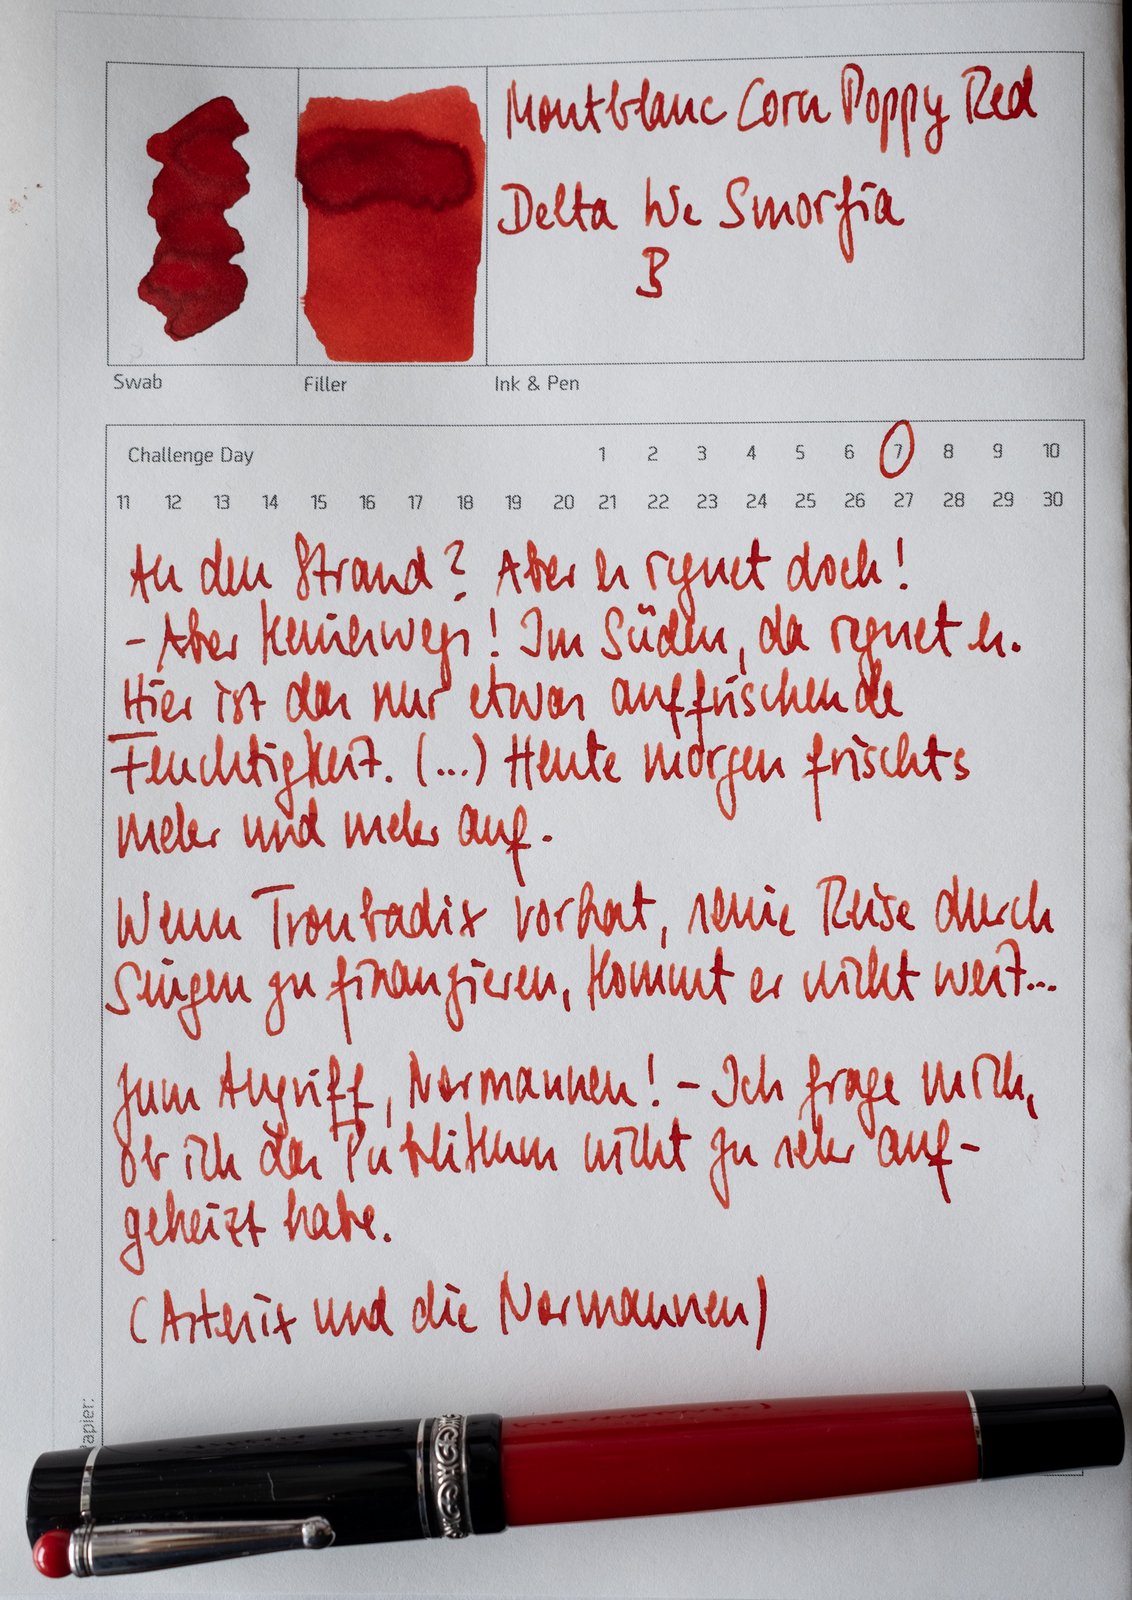 Montblanc Corn Poppy Red
Delta We Smorfia
B
Swab
Filler
Ink & Pen
Challenge Day 1 2 3 4 5 6 7 8 9 10
11 12 13 14 15 16 17 18 19 20 21 22 23 24 25 26 27 28 29 30
An den Strand? Aber es regnet doch!
- Aber keineswegs! Im Süden, da regnet es.
Hier ist das nur etwas auffrischende
Feuchtigkeit. (...) Heute morgen frischts
mehr und mehr auf.
Wenn Troubadix vorhat, seine Reise durch
Singen zu finanzieren, kommt er nicht weit...
Zum Angriff, Normannen! - Ich frage mich,
ob ich das Publikum nicht zu sehr auf-
geheizt habe.
(Asterix und die Normannen)
Papier: